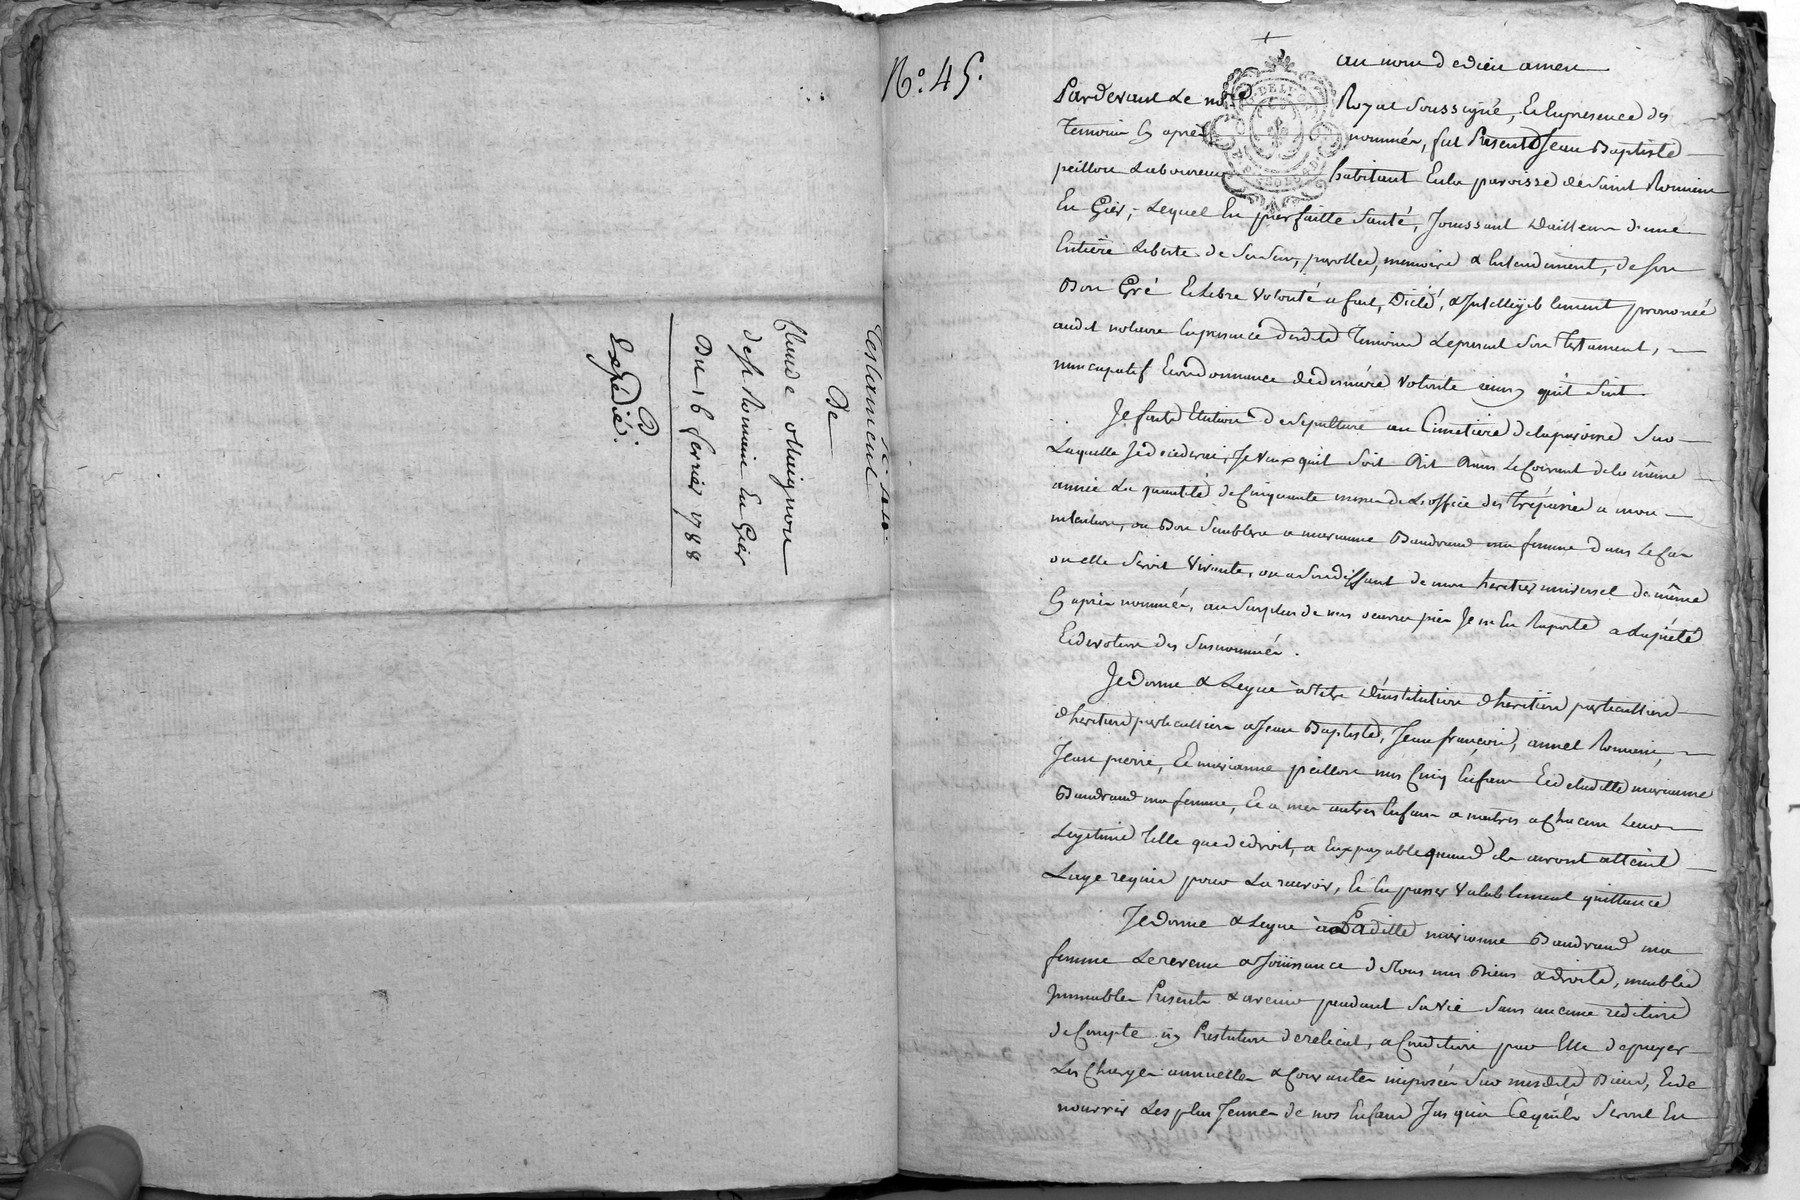 Testament
De
Claude
de St Romain En Gier
Du 16 fevrier 1788
Expédié.
No. 45.
au nom de dieu amen
Pardevant Le no.re Royal Soussigné, Et En presence des
Temoins Cy aprés nommés, fut Present Jean Baptiste
peillon Laboureur habitant En la paroisse de Saint Romain
En Gier, Lequel En parfaitte Santé, Jouissant d'ailleurs d'une
Entiere Liberté de Sa Sens, parolles, memoire & Entendiment, de Son
Bon Gré Et Libre Volonté a fait, Dicté, & Intelligiblement prononcé
audit notaire En presence desdits Temoins Le present Son Testament,
nuncupatif Et ordonnance de derniére Volonté ainsy qu'il Suit.
Je fais Election de Sepulture au Cimetiere de la paroisse Sur
Laquelle Je decederai, Je Veux qu'il Soit Dit Dans Le Courant de la même
année La quantité de Cinquante messes de L'office des Trépassés a mon
intention, ou Bon Semblera a marianne Baudrand ma femme dans Le Cas
ou elle Seroit Vivante, ou a Son deffaut de mon heritier universel de même
Cy aprés nommés, au Surplus de mes oeuvres pies Je m'En Raporte a La piété
Et devotion des Susnommés.
Je donne & Legue à titre d'institution d'heritiere particulliere
d'heritiers particulliers a Jean Baptiste, Jean françois, annet Romain,
Jean pierre, Et marianne peillon mes Cinq Enfans Et de Laditte marianne
Baudrand ma femme, Et a mes autres Enfans a naitres a Chacun Leur
Legitime telle que de droit, a Eux payable quand ils auront atteint
L'age requis pour La recevoir, Et En passer Valablement quittance
Je donne & Legue à Laditte marianne Baudrand ma
femme Le revenu & Jouissance de tous mes Biens & droits, meubles
Immeubles Presents & avenir pendant Sa Vie Sans aucune redition
de Compte ny Prestation de relicat, a Condition par Elle de payer
Les Charges annuelles & Courantes imposées Sur mesdits Biens, Et de
nourrir Les plus Jeunes de nos Enfans Jusqu'a Ce qu'ils Seront En